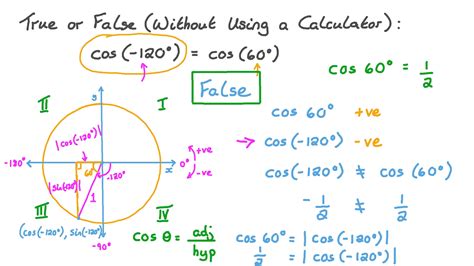 True or False (Without Using a Calculator):
cos(-120°) = cos(60°)
False
cos 60° = 1/2
II
I
III
IV
y
x
|cos(-120°)|
|sin(-120°)|
60°
-120°
1
-180°
0°
+ve
-ve
-90°
(cos(-120°), sin(-120°))
cos θ = adj/hyp
cos 60° +ve
→ cos(-120°) -ve
cos(-120°) ≠ cos(60°)
-1/2 ≠ 1/2
cos 60° = |cos(-120°)|
1/2 = |cos(-120°)|